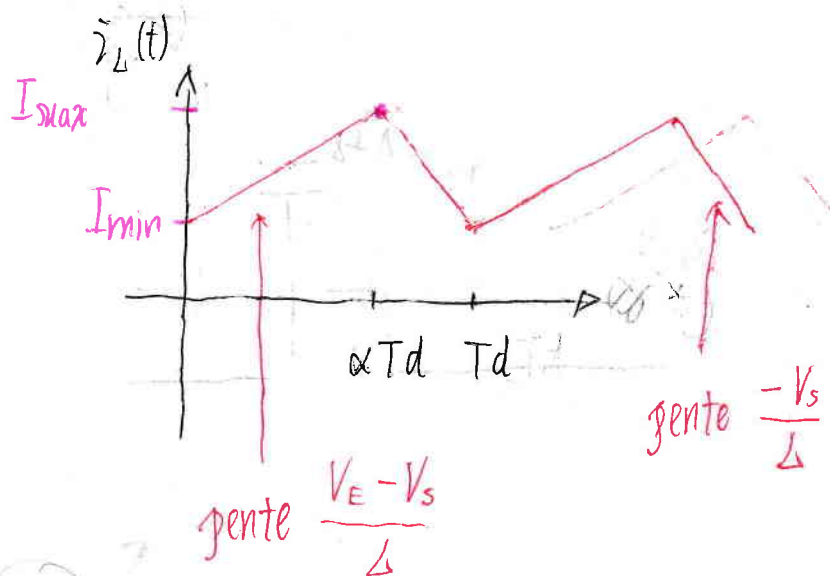 i_L(t)
I_max
I_min
αTd Td
pente \frac{V_E - V_s}{L}
pente \frac{-V_s}{L}